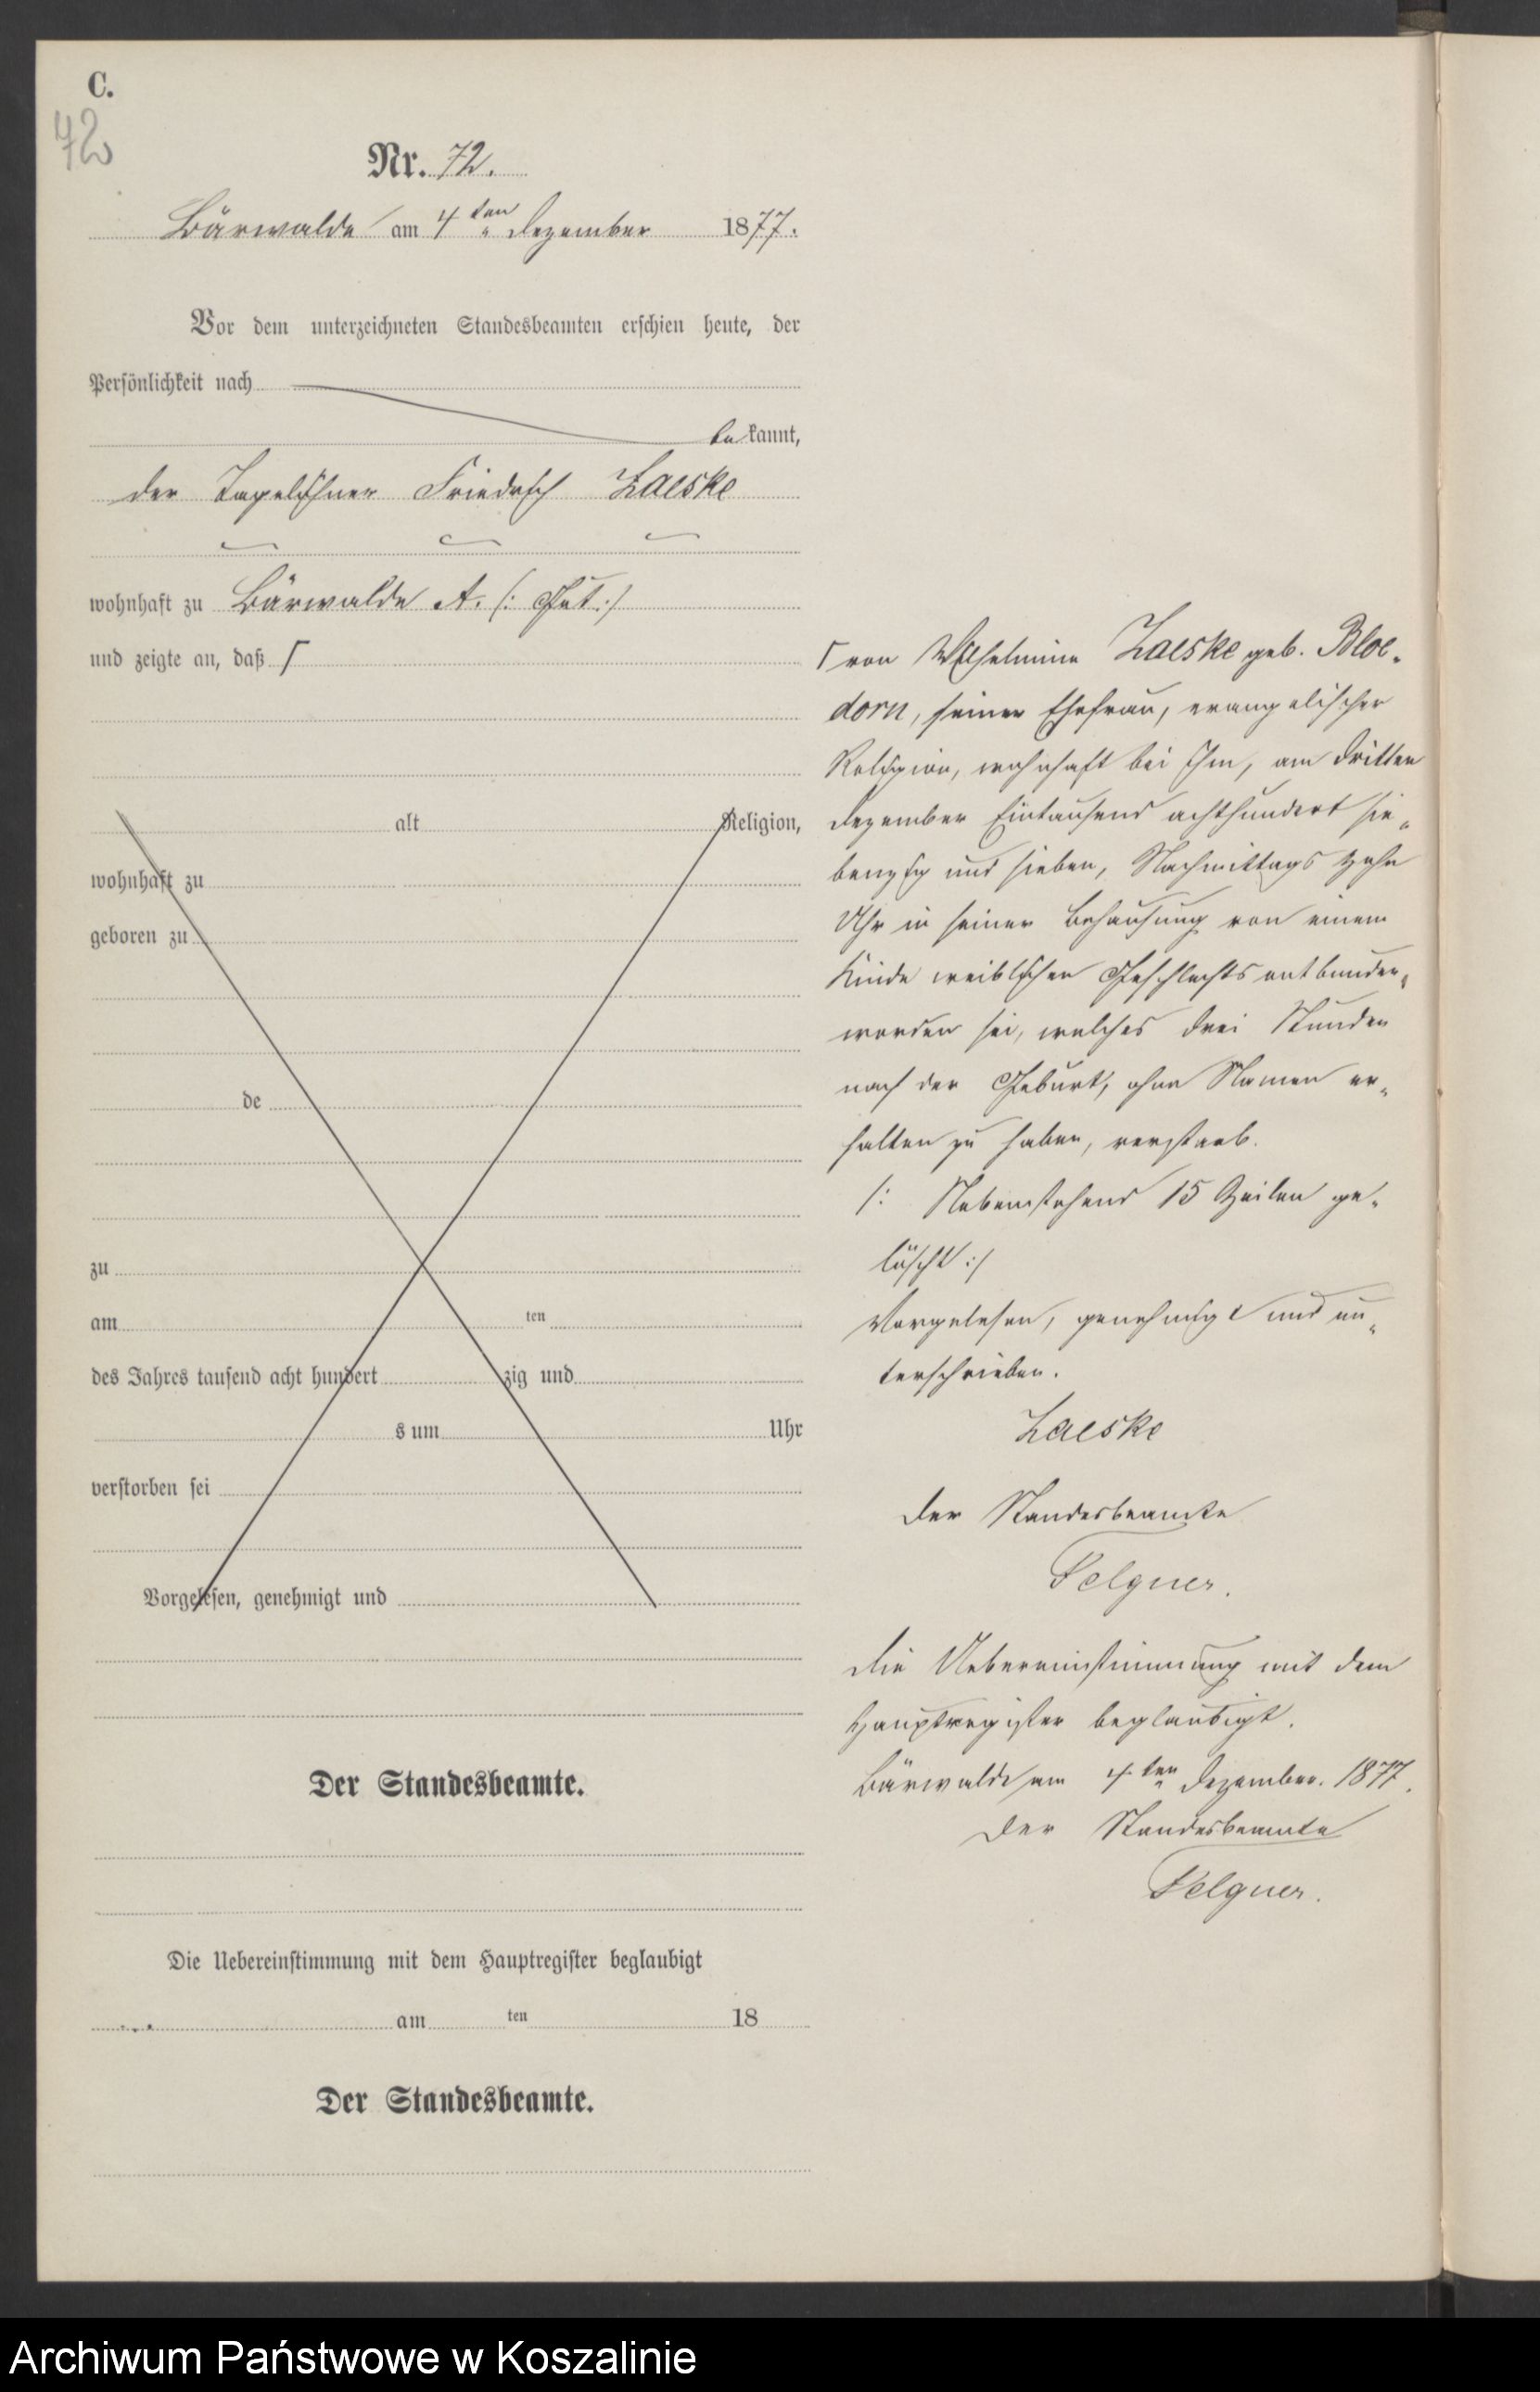 C.
72
Nr. 72.
Bärwalde am 4ten Dezember 1877.
Vor dem unterzeichneten Standesbeamten erschien heute, der
Persönlichkeit nach
bekannt,
der Tagelöhner Friedrich Zaeske
wohnhaft zu Bärwalde A. (: Gut :)
und zeigte an, daß Γ
alt Religion,
wohnhaft zu
geboren zu
de
zu
am ten
des Jahres tausend acht hundert zig und
s um Uhr
verstorben sei
Vorgelesen, genehmigt und
Der Standesbeamte.
Die Uebereinstimmung mit dem Hauptregister beglaubigt
am ten 18
Der Standesbeamte.
Γ von Wilhelmine Zaeske geb. Bloe-
dorn, seiner Ehefrau, evangelischer
Religion, wohnhaft bei Ihm, am dritten
Dezember Eintausend achthundert sie-
benzig und sieben, Nachmittags zehn
Uhr in seiner Behausung von einem
Kinde weiblichen Geschlechts entbunden
worden sei, welches drei Stunden
nach der Geburt, ohne Namen er-
halten zu haben, verstarb.
/: Nebenstehend 15 Zeilen ge-
löscht :/
Vorgelesen, genehmigt und un-
terschrieben.
Zaeske
Der Standesbeamte
Felgner.
Die Uebereinstimmung mit dem
Hauptregister beglaubigt.
Bärwalde am 4ten Dezember. 1877.
Der Standesbeamte
Felgner.
Archiwum Państwowe w Koszalinie